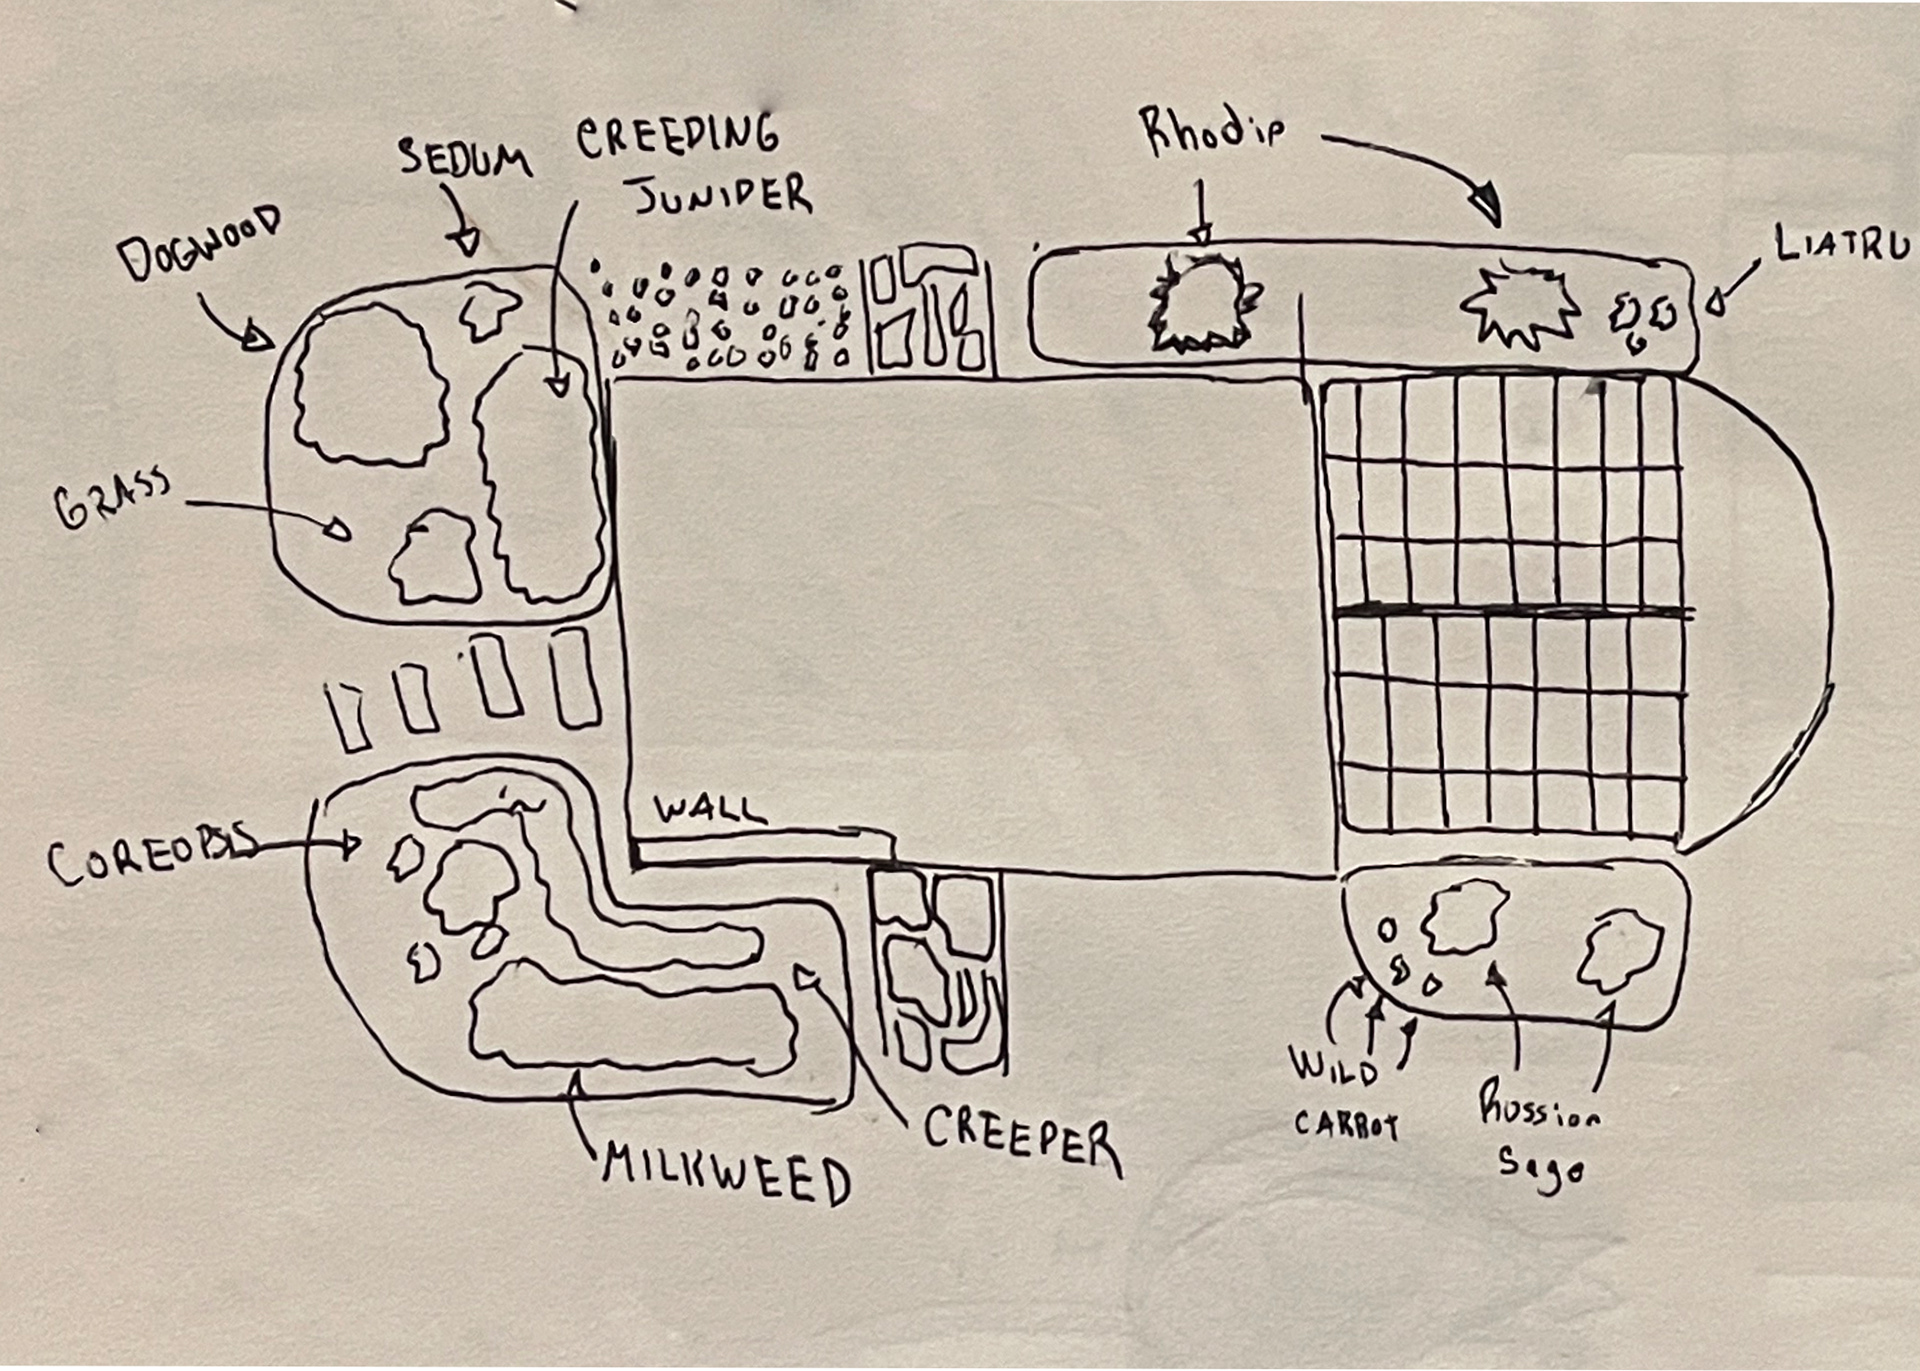 SEDUM
CREEPING
JUNIPER
Rhodip
DOGWOOD
LIATRU
GRASS
WALL
COREOPSIS
MILKWEED
CREEPER
WILD
CARROT
Russian
Sage